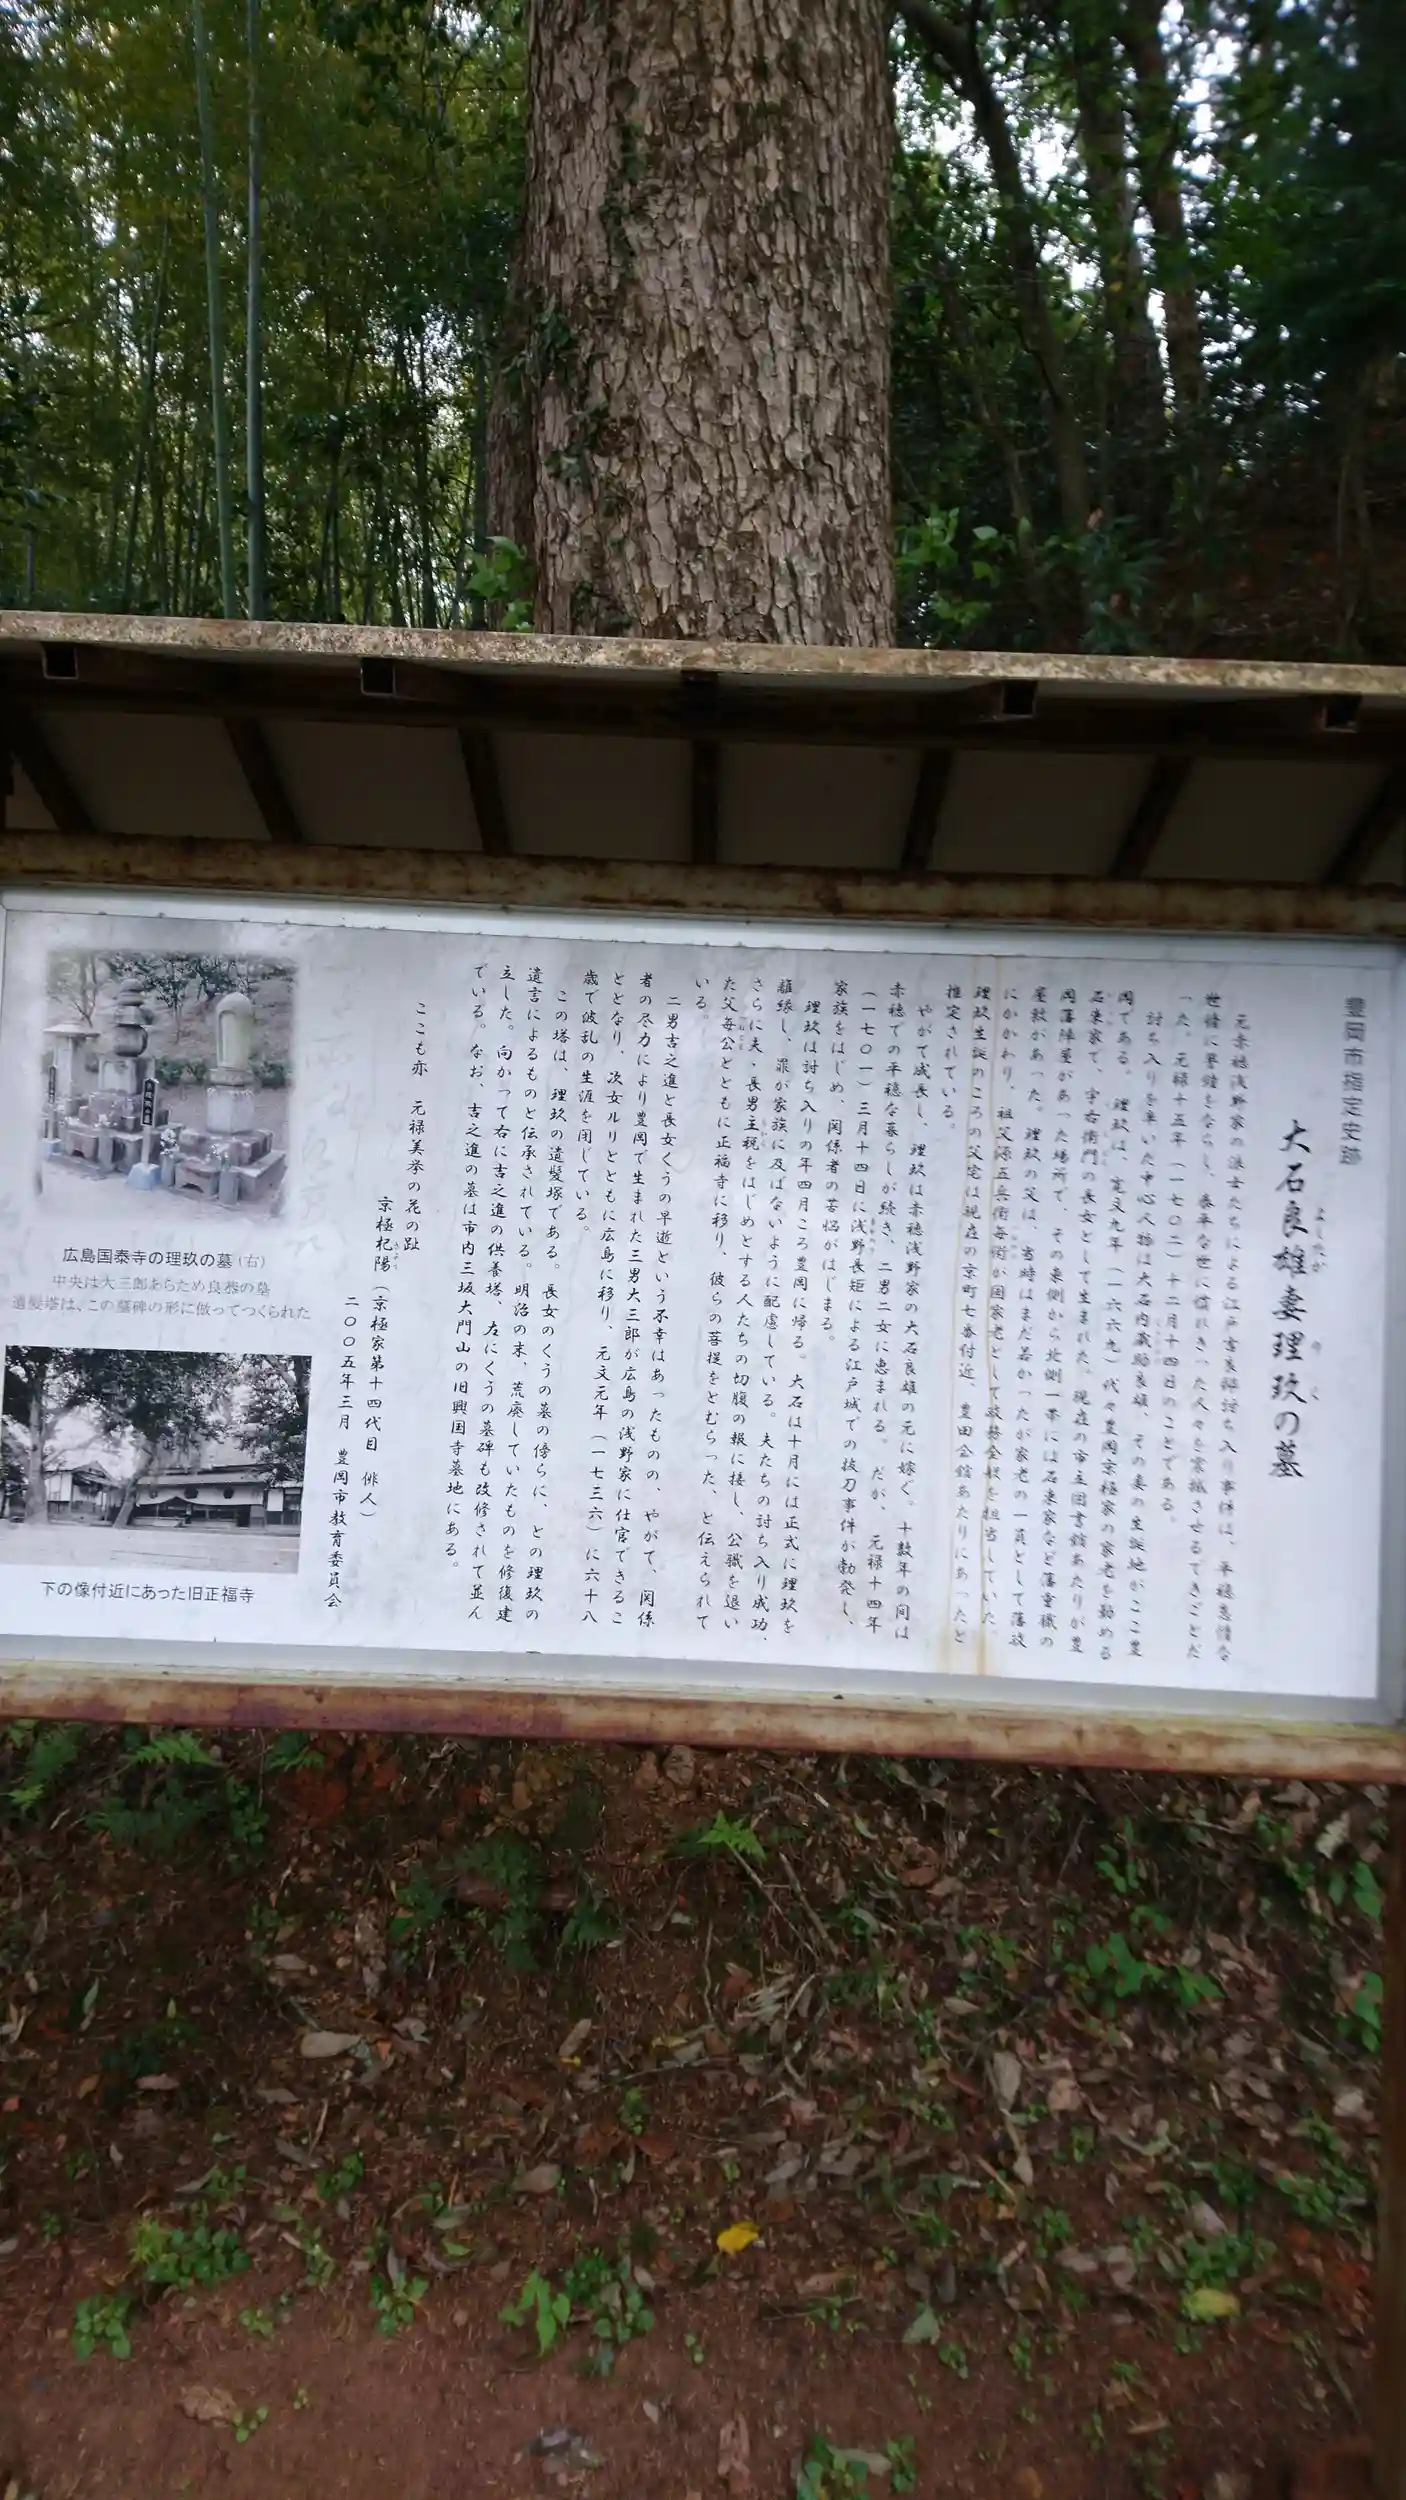 豊岡市指定史跡
大石良雄妻理玖の墓
よしたか
りく
元赤穂浅野家の浪士たちによる江戸吉良邸討ち入り事件は、平穏怠惰な
世情に警鐘をならし、泰平な世に慣れきった人々を震撼させるできごとだ
った。元禄十五年（一七〇二）十二月十四日のことである。
討ち入りを率いた中心人物は大石内蔵助良雄、その妻の生誕地がここ豊
岡である。理玖は、寛文九年（一六六九）代々豊岡京極家の家老を勤める
石束家で、宇右衛門の長女として生まれた。現在の市立図書館あたりが豊
岡藩陣屋があった場所で、その東側から北側一帯には石束家など藩重職の
屋敷があった。理玖の父は、当時はまだ若かったが家老の一員として藩政
にかかわり、祖父源五兵衛毎術が国家老として政務全般を担当していた。
理玖生誕のころの父宅は現在の京町七番付近、豊田会館あたりにあったと
推定されている。
やがて成長し、理玖は赤穂浅野家の大石良雄の元に嫁ぐ。十数年の間は
赤穂での平穏な暮らしが続き、二男二女に恵まれる。だが、元禄十四年
（一七〇一）三月十四日に浅野長矩による江戸城での抜刀事件が勃発し、
家族をはじめ、関係者の苦悩がはじまる。
理玖は討ち入りの年四月ころ豊岡に帰る。大石は十月には正式に理玖を
離縁し、罪が家族に及ばないように配慮している。夫たちの討ち入り成功、
さらに夫・長男主税をはじめとする人たちの切腹の報に接し、公職を退い
た父毎公とともに正福寺に移り、彼らの菩提をとむらった、と伝えられて
いる。
二男吉之進と長女くうの早逝という不幸はあったものの、やがて、関係
者の尽力により豊岡で生まれた三男大三郎が広島の浅野家に仕官できるこ
ととなり、次女ルリとともに広島に移り、元文元年（一七三六）に六十八
歳で波乱の生涯を閉じている。
この塔は、理玖の遺髪塚である。長女のくうの墓の傍らに、との理玖の
遺言によるものと伝承されている。明治の末、荒廃していたものを修復建
立した。向かって右に吉之進の供養塔、左にくうの墓碑も改修されて並ん
でいる。なお、吉之進の墓は市内三坂大門山の旧興国寺墓地にある。
ここも亦　元禄美挙の花の趾
京極杞陽（京極家第十四代目　俳人）
きよう
二〇〇五年三月　豊岡市教育委員会
広島国泰寺の理玖の墓（右）
中央は大三郎あらため良恭の墓
遺髪塔は、この墓碑の形に倣ってつくられた
下の像付近にあった旧正福寺